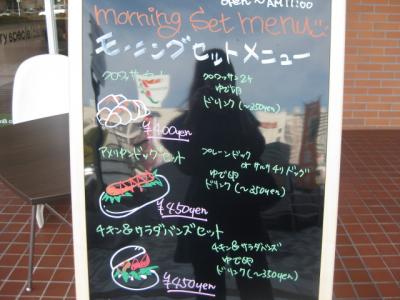 open ~ AM 11:00
morning Set menu
モーニングセットメニュー
クロワッサンセット
クロワッサン2ヶ
ゆで卵
ドリンク(~250yen)
¥400yen
アメリカンドッグセット
プレーンドッグ
or サルサチリドッグ
ゆで卵
ドリンク(~350yen)
¥450yen
チキン&サラダバンズセット
チキン&サラダバンズ
ゆで卵
ドリンク(~350yen)
¥450yen